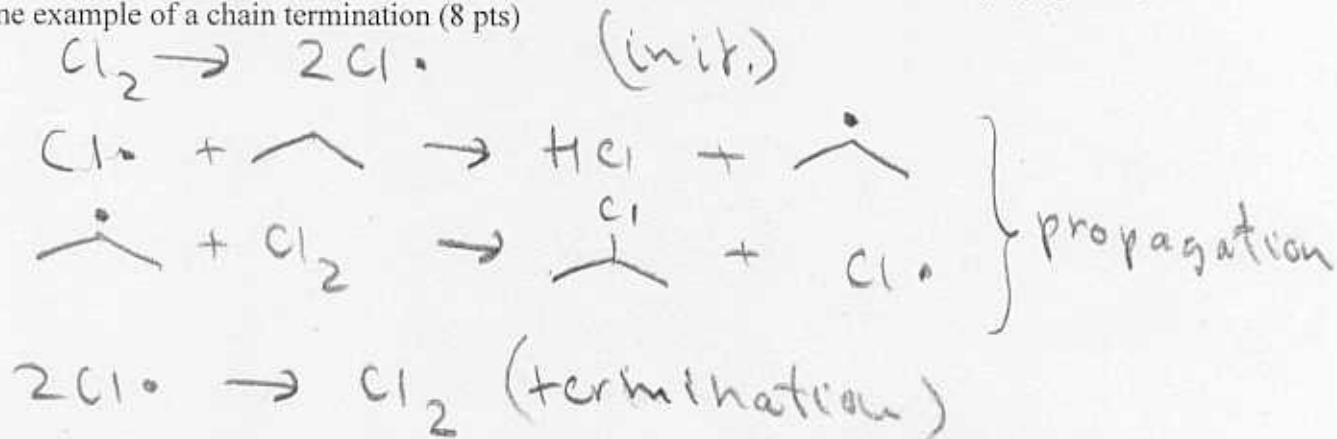 ne example of a chain termination (8 pts)
Cl2 → 2Cl• (init.)
Cl• + → HCl + •
• + Cl2 → Cl + Cl•
propagation
2Cl• → Cl2 (termination)